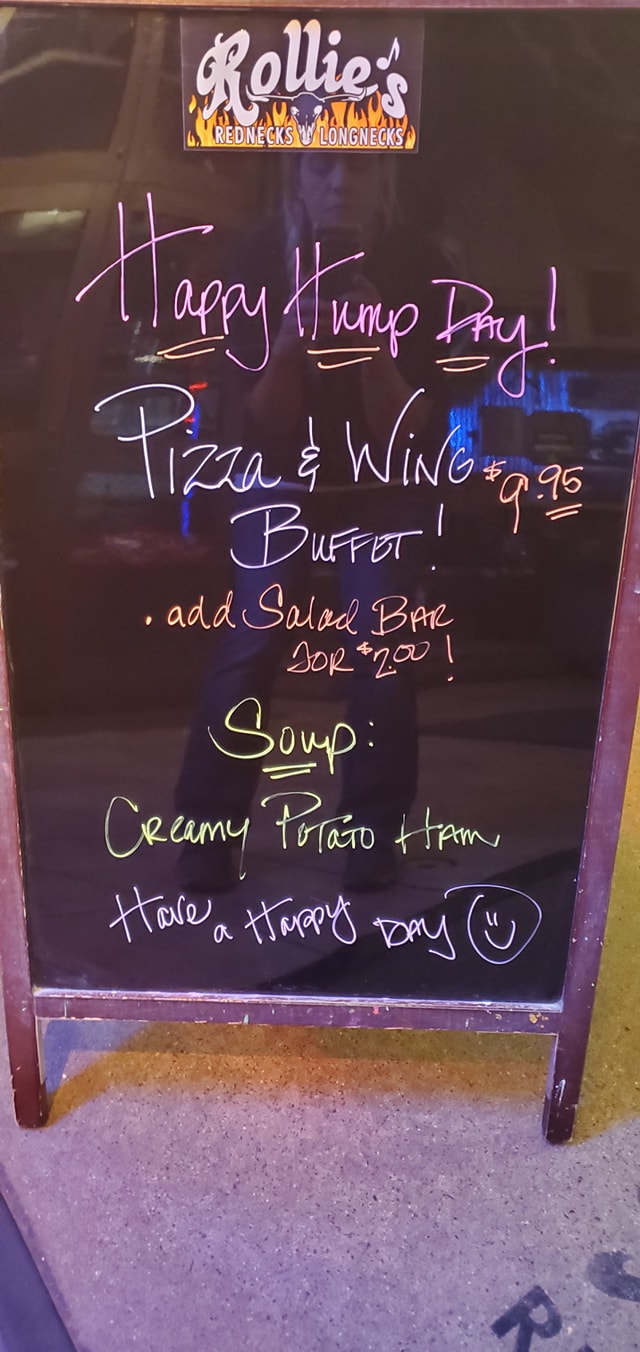 Rollie's
REDNECKS LONGNECKS
Happy Hump Day!
Pizza & Wing $9.95
Buffet!
· add Salad Bar
for $2.00!
Soup:
Creamy Potato Ham
Have a Happy Day
R